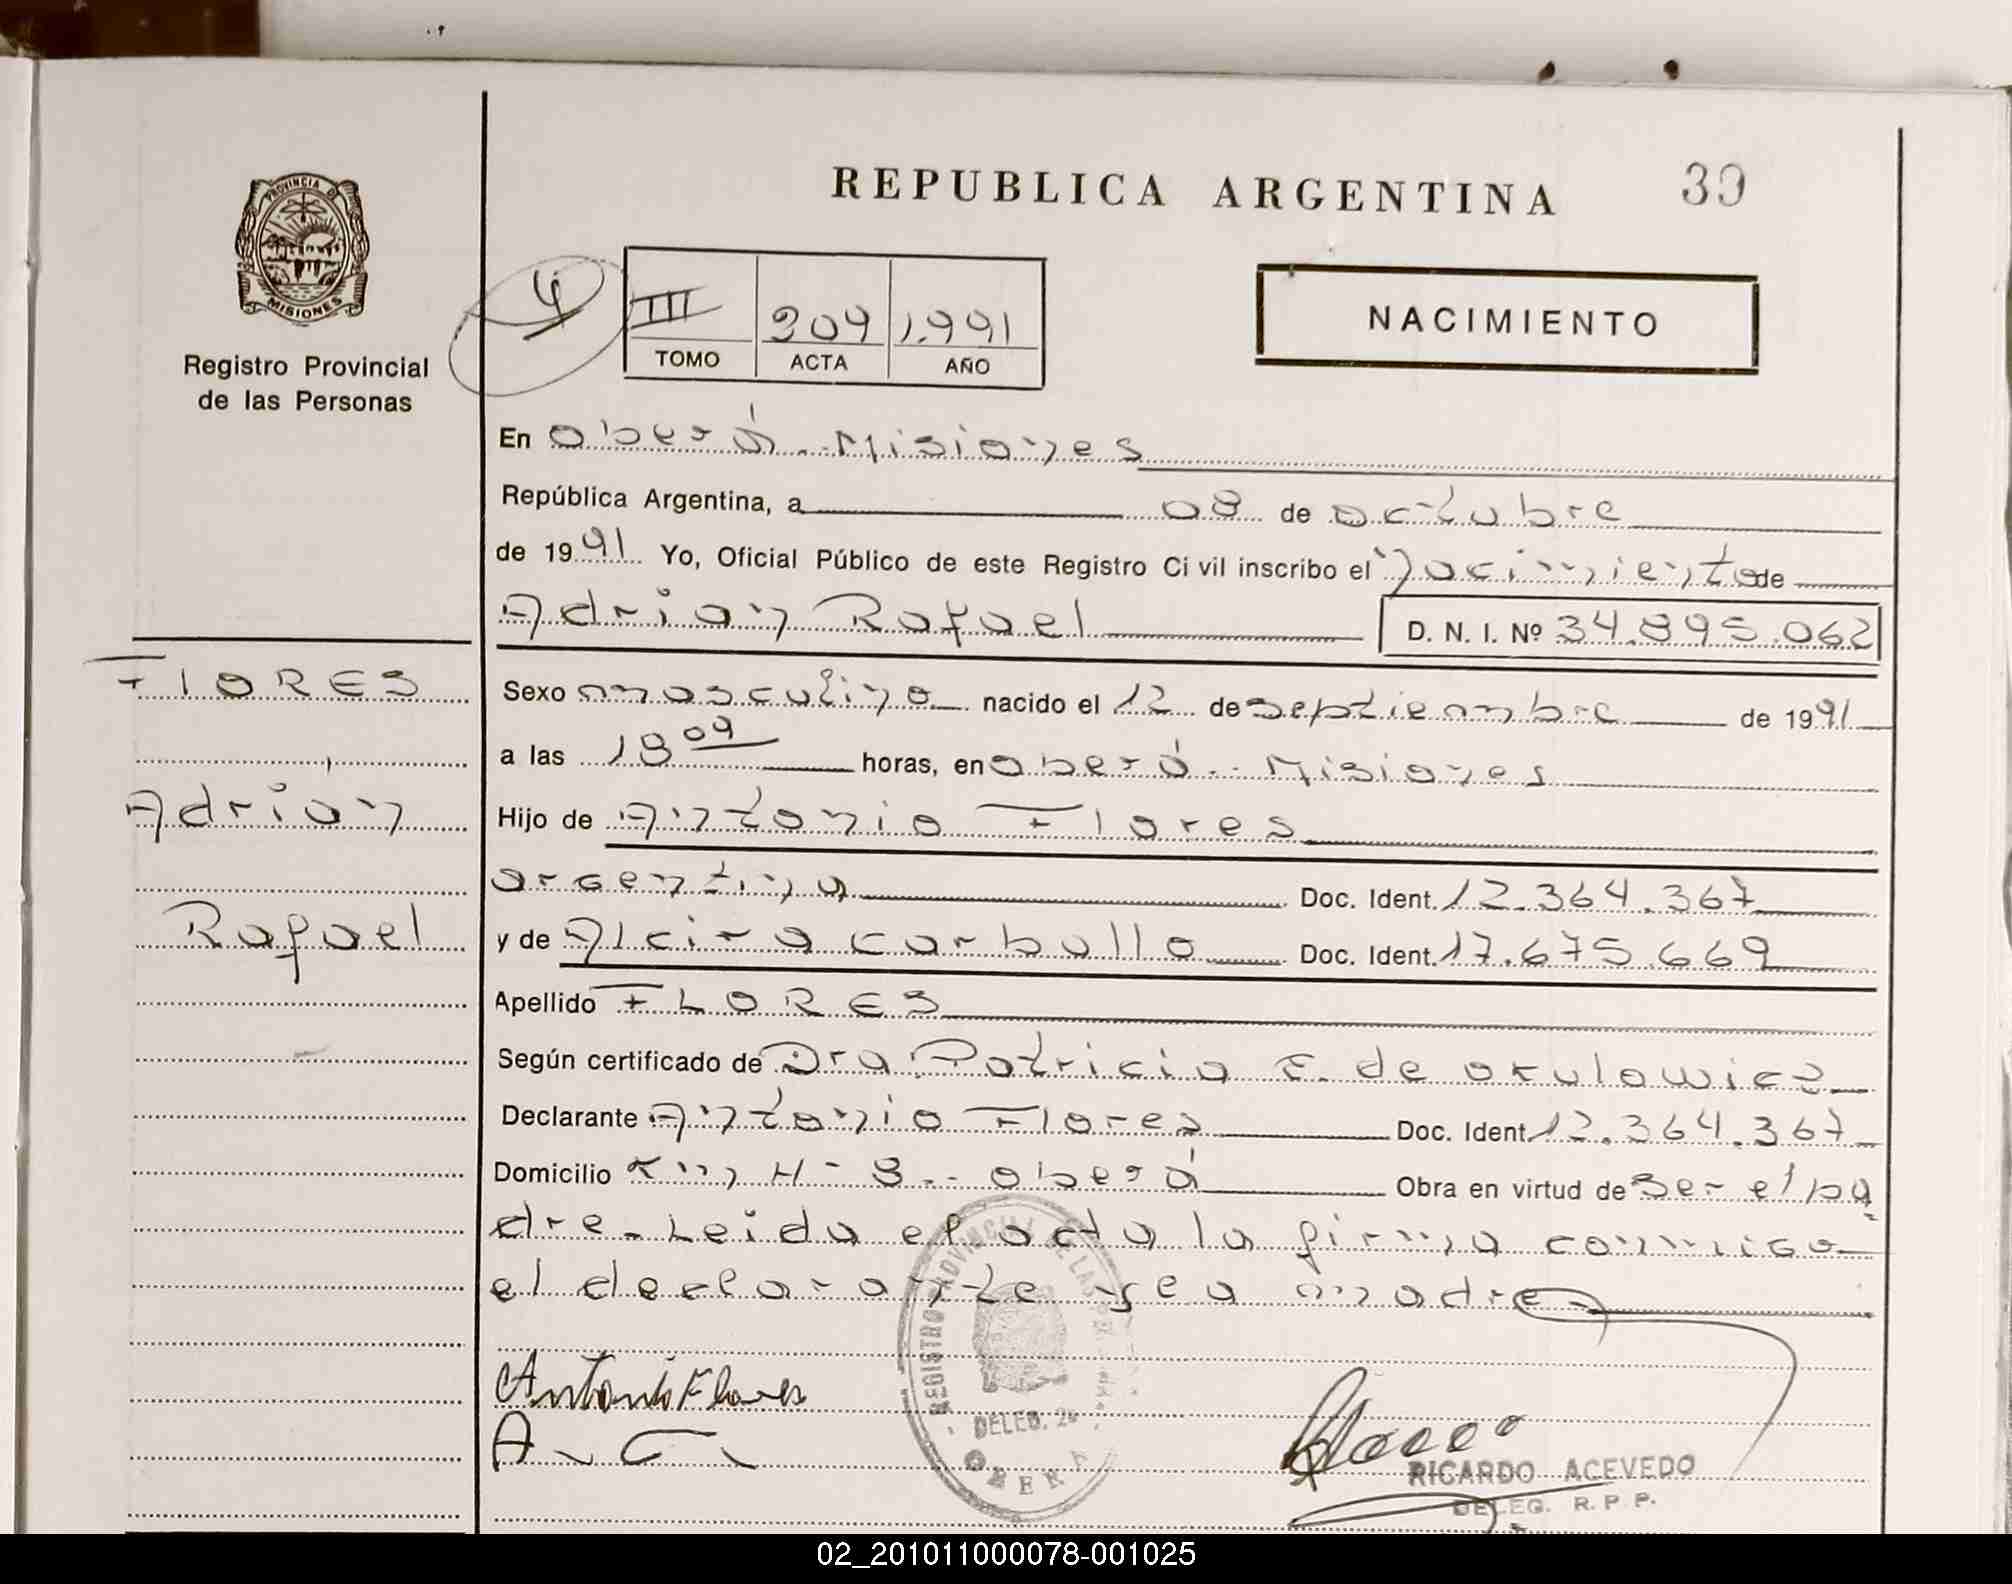 REPUBLICA ARGENTINA
39
PROVINCIA DE
MISIONES
Registro Provincial
de las Personas
4
III 309 1.991
TOMO ACTA AÑO
NACIMIENTO
En Oberá.-Misiones
República Argentina, a 08 de octubre
de 1991 Yo, Oficial Público de este Registro Civil inscribo el Nacimiento de
Adrian Rafael D. N. I. Nº 34.895.062
FLORES
Adrián
Rafael
Sexo masculino nacido el 12 de septiembre de 1991
a las 18 09 horas, en Oberá.- Misiones
Hijo de Antonio Flores
argentina Doc. Ident. 12.364.367
y de Alcira carballo Doc. Ident. 17.675.669
Apellido FLORES
Según certificado de Dra Patricia E. de okulowicz
Declarante Antonio Flores Doc. Ident. 12.364.367
Domicilio Km H-8.- Oberá Obra en virtud de ser el pa
dre.-Leida el acta la firma conmigo
el declarante y la madre
Antonio Flores
A. C.
REGISTRO PROVINCIAL DE LAS
DELEG. 2ª
OBERA
RICARDO ACEVEDO
DELEG. R. P. P.
02_201011000078-001025